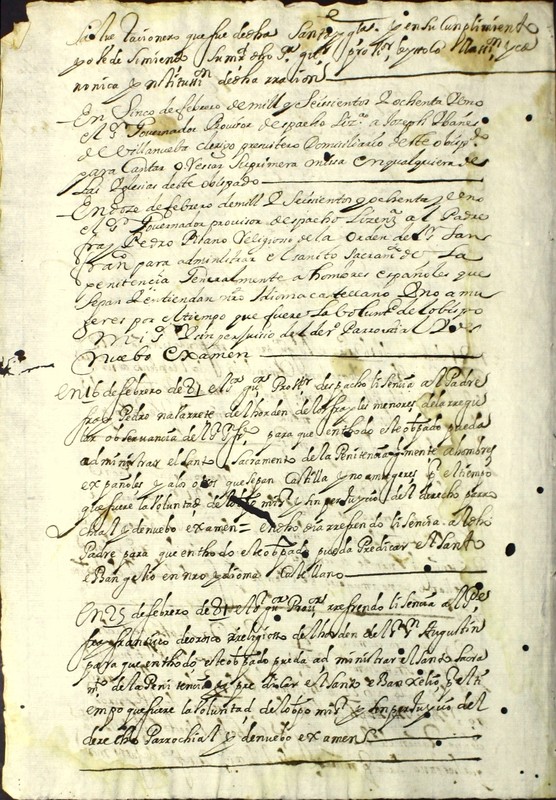 que fue dicha Santa y en su cumplimiento
nonica ynstitución dicha
En Sinco de febrero de mill y Seisientos y ochenta y Uno
el Sr Governador Provisor despacho lizª a Joseph Ybañes
de Villanueba clerigo presuitero Domisiliario deste obispdo
para Cantar o Resar su primera missa en qualquiera de
las Yglesias deste obispado
En doze de febrero de mill y Seisientos y ochenta y uno
el Sr Governador provisor despacho lizenza al Padre
fray Pedro Pisano Religioso de la Orden de Sr San
franco para administrar el santo Sacramto de La
penitencia Generalmente a hombres españoles que
sepan y entiendan nro Idioma castellano y no a mu
geres por el tiempo que fuere la volunt de el obispo
mi Sr y sin perjuisio del dro Parrochial y de
Nuebo Examen
En 16 de febrero de 81 el Sr Gor Provor despacho lisensia al Padre
fray Pedro nabarrete del horden de los frayles menores de la rregu
lar observancia de N P S franco para que en tho do este obpado pueda
administrar el santo Sacramento de la Penitencia a hombres
españoles y a los que sepan Castilla y no a mugeres por el tiempo
que fuere la Voluntad de el obispo mi sr y sin perjuycio del derecho parro
chial y de nuebo examen = en dho dia rrefrendo lisensia a dho
Padre para que en tho do este obpado pueda Predicar el Santo
eBangelio en nro ydioma Castellano
En 25 de febrero de 81 el Sr Gor Provor rrefrendo lisensia al Pe
fray francisco de orosco rreligioso del horden de N P S Augustin
para que en tho do este obpado pueda administrar el santo Sacra
mto de la Penitencia y predicar el Santo eBanxelio por el ti
empo que fuere la Voluntad de el obpo mi sr y sin perjuycio del
derecho Parrochial y de nuebo examen